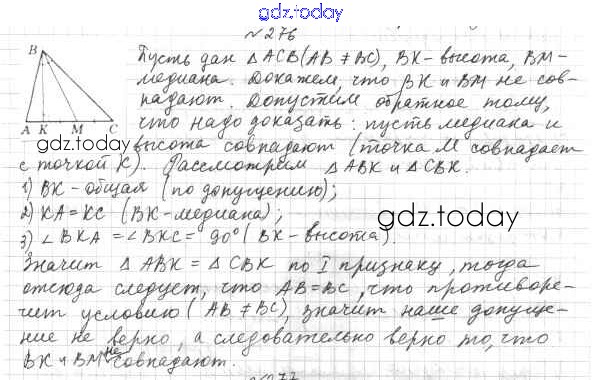 gdz.today
№276
B
A K M C
Пусть дан △ACB (AB ≠ BC), BK - высота, BM -
медиана. Докажем, что BK и BM не сов-
падают. Допустим обратное тому,
что надо доказать: пусть медиана и
gdz.today
высота совпадают (точка M совпадает
с точкой K). Рассмотрим △ABK и △CBK.
1) BK - общая (по допущению);
2) KA = KC (BK - медиана);
gdz.today
3) ∠BKA = ∠BKC = 90° (BK - высота).
Значит △ABK = △CBK по I признаку, тогда
отсюда следует, что AB = BC, что противоре-
чит условию (AB ≠ BC), значит наше допуще-
ние не верно, а следовательно верно то, что
BK и BM не совпадают.
№277